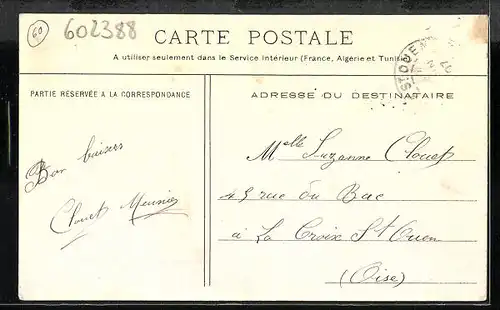 60
602388
CARTE POSTALE
A utiliser seulement dans le Service Intérieur (France, Algérie et Tunisie)
PARTIE RÉSERVÉE A LA CORRESPONDANCE
ADRESSE DU DESTINATAIRE
Bon baisers
Clouet Meunier
Melle Suzanne Clouet
45 rue du Bac
à La Croix St Ouen
(Oise)